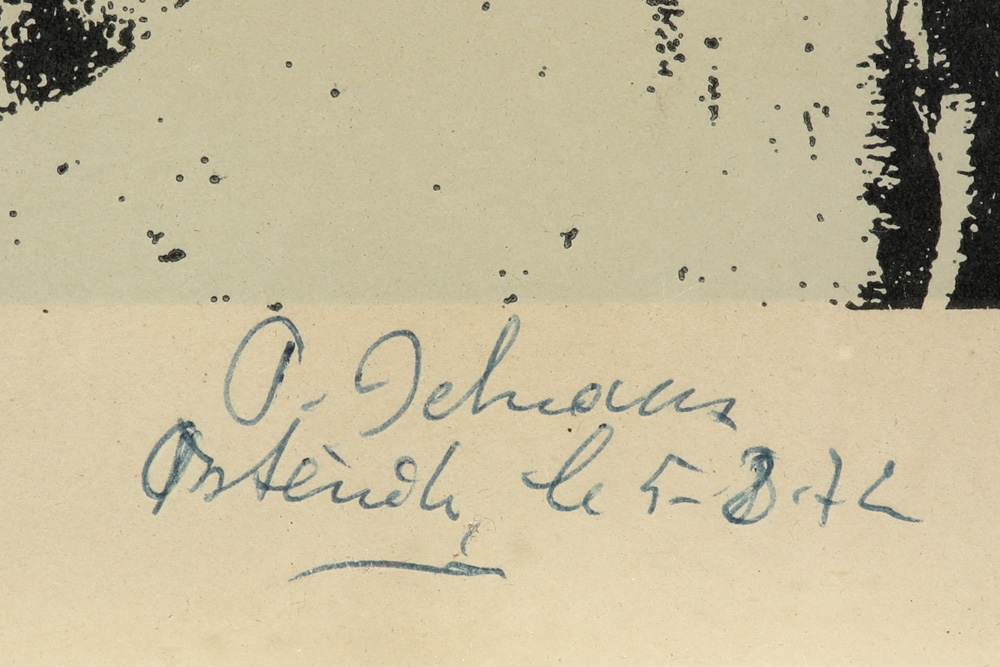 P. Jehaus
Ostende, le 5-8-72